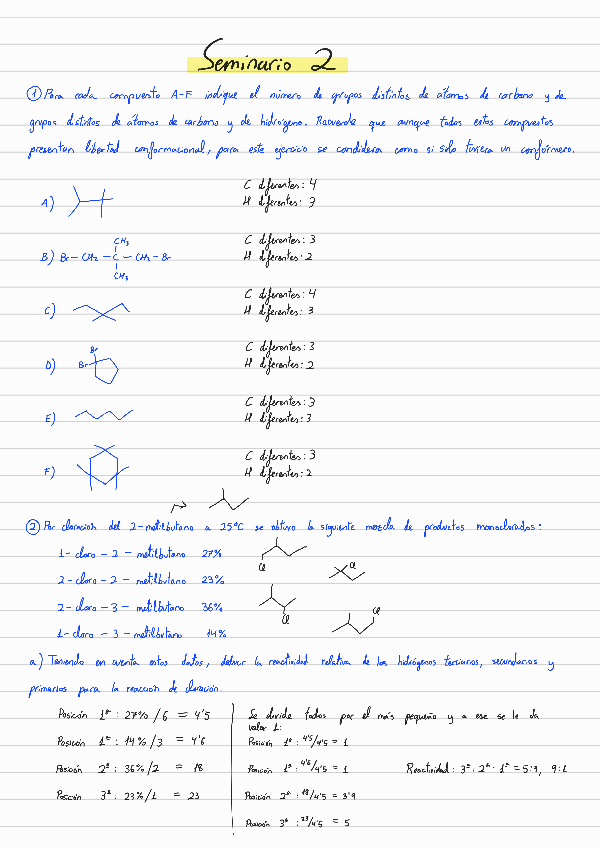 Seminario 2
① Para cada compuesto A-F indique el número de grupos distintos de átomos de carbono y de
grupos distintos de átomos de carbono y de hidrógeno. Recuerde que aunque todos estos compuestos
presentan libertad conformacional, para este ejercicio se considera como si solo tuviera un confórmero.
A)
C diferentes: 4
H diferentes: 3
B) Br – CH2 – C – CH2 – Br
CH3
CH3
C diferentes: 3
H diferentes: 2
C)
C diferentes: 4
H diferentes: 3
D) Br
Br
C diferentes: 3
H diferentes: 2
E)
C diferentes: 3
H diferentes: 3
F)
C diferentes: 3
H diferentes: 2
② Por cloración del 2-metilbutano a 25ºC se obtuvo la siguiente mezcla de productos monoclorados:
1-cloro-2-metilbutano 27% Cl
2-cloro-2-metilbutano 23% Cl
2-cloro-3-metilbutano 36% Cl
1-cloro-3-metilbutano 14% Cl
a) Teniendo en cuenta estos datos, deducir la reactividad relativa de los hidrógenos terciarios, secundarios y
primarios para la reacción de cloración.
Posición 1ª: 27%/6 = 4'5
Posición 1ª: 14%/3 = 4'6
Posición 2ª: 36%/2 = 18
Posición 3ª: 23%/1 = 23
Se divide todos por el más pequeño y a ese se le da
valor 1:
Posición 1ª: 4'5/4'5 = 1
Posición 1ª: 4'6/4'5 = 1
Posición 2ª: 18/4'5 = 3'9
Posición 3ª: 23/4'5 = 5
Reactividad: 3ª: 2ª: 1ª = 5:3, 9:1